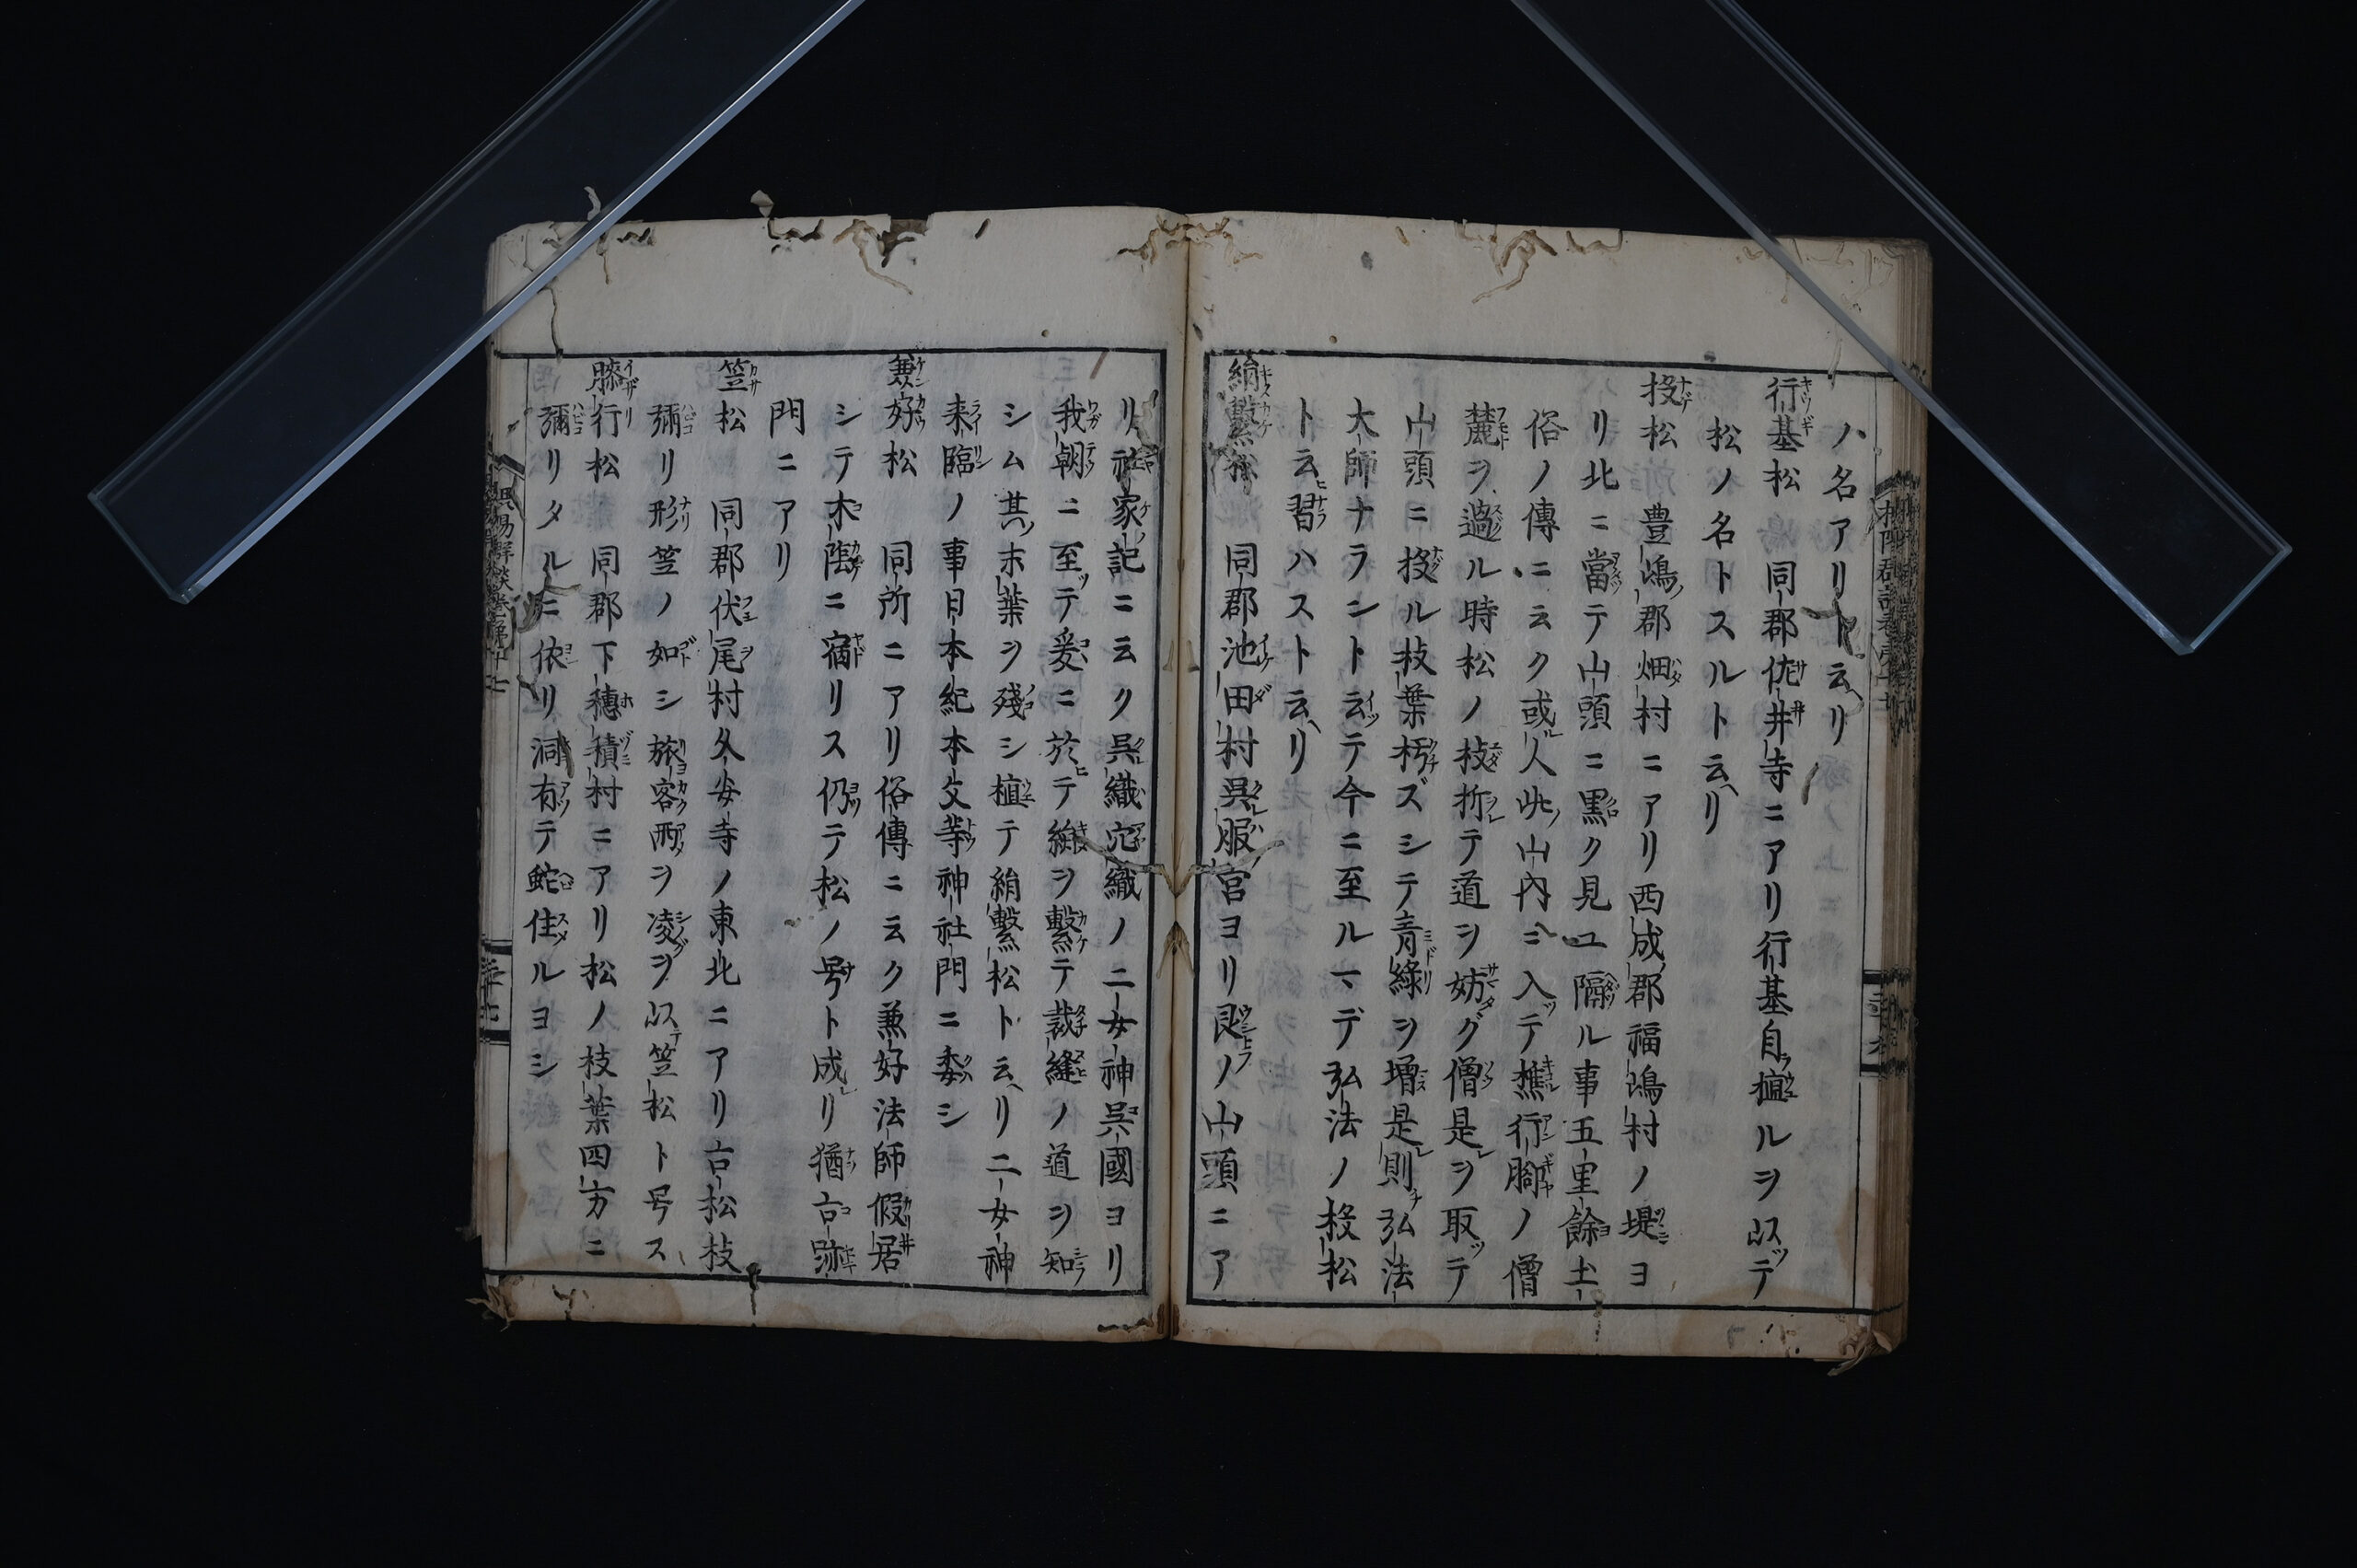 ハ名アリト云リ
行基松　同郡佐井寺ニアリ行基自植ルヲ以テ
松ノ名トスルト云リ
投松　豊嶋郡畑村ニアリ西成郡福嶋村ノ堤ヨ
リ北ニ當テ山頭ニ黒ク見ユ隔ル事五里餘土
俗ノ傳ニ云ク或人此山内ニ入テ樵行脚ノ僧
麓ヲ過ル時松ノ枝折テ道ヲ妨グ僧是ヲ取テ
山頭ニ投ル枝葉朽ズシテ青緑ヲ増是則弘法
大師ナラントト云テ今ニ至ルマデ弘法ノ投松
ト云習ハスト云リ
絹繫松　同郡池田村呉服宮ヨリ艮ノ山頭ニア
リ社家記ニ云ク呉織穴織ノ二女神呉國ヨリ
我朝ニ至テ爰ニ於テ絹ヲ繫テ裁縫ノ道ヲ知
シム其末葉ヲ殘シ植テ絹繫松ト云リ二女神
来臨ノ事日本紀本文等神社門ニ委シ
兼好松　同所ニアリ俗傳ニ云ク兼好法師假居
シテ木陰ニ宿リス仍テ松ノ号ト成リ猶古跡
門ニアリ
笠松　同郡伏尾村久安寺ノ東北ニアリ古松枝
彌リ形笠ノ如シ旅客雨ヲ凌ヲ以笠松ト号ス
膝行松　同郡下穗積村ニアリ松ノ枝葉四方ニ
彌リタルニ依リ洞有テ蛇住ルヨシ